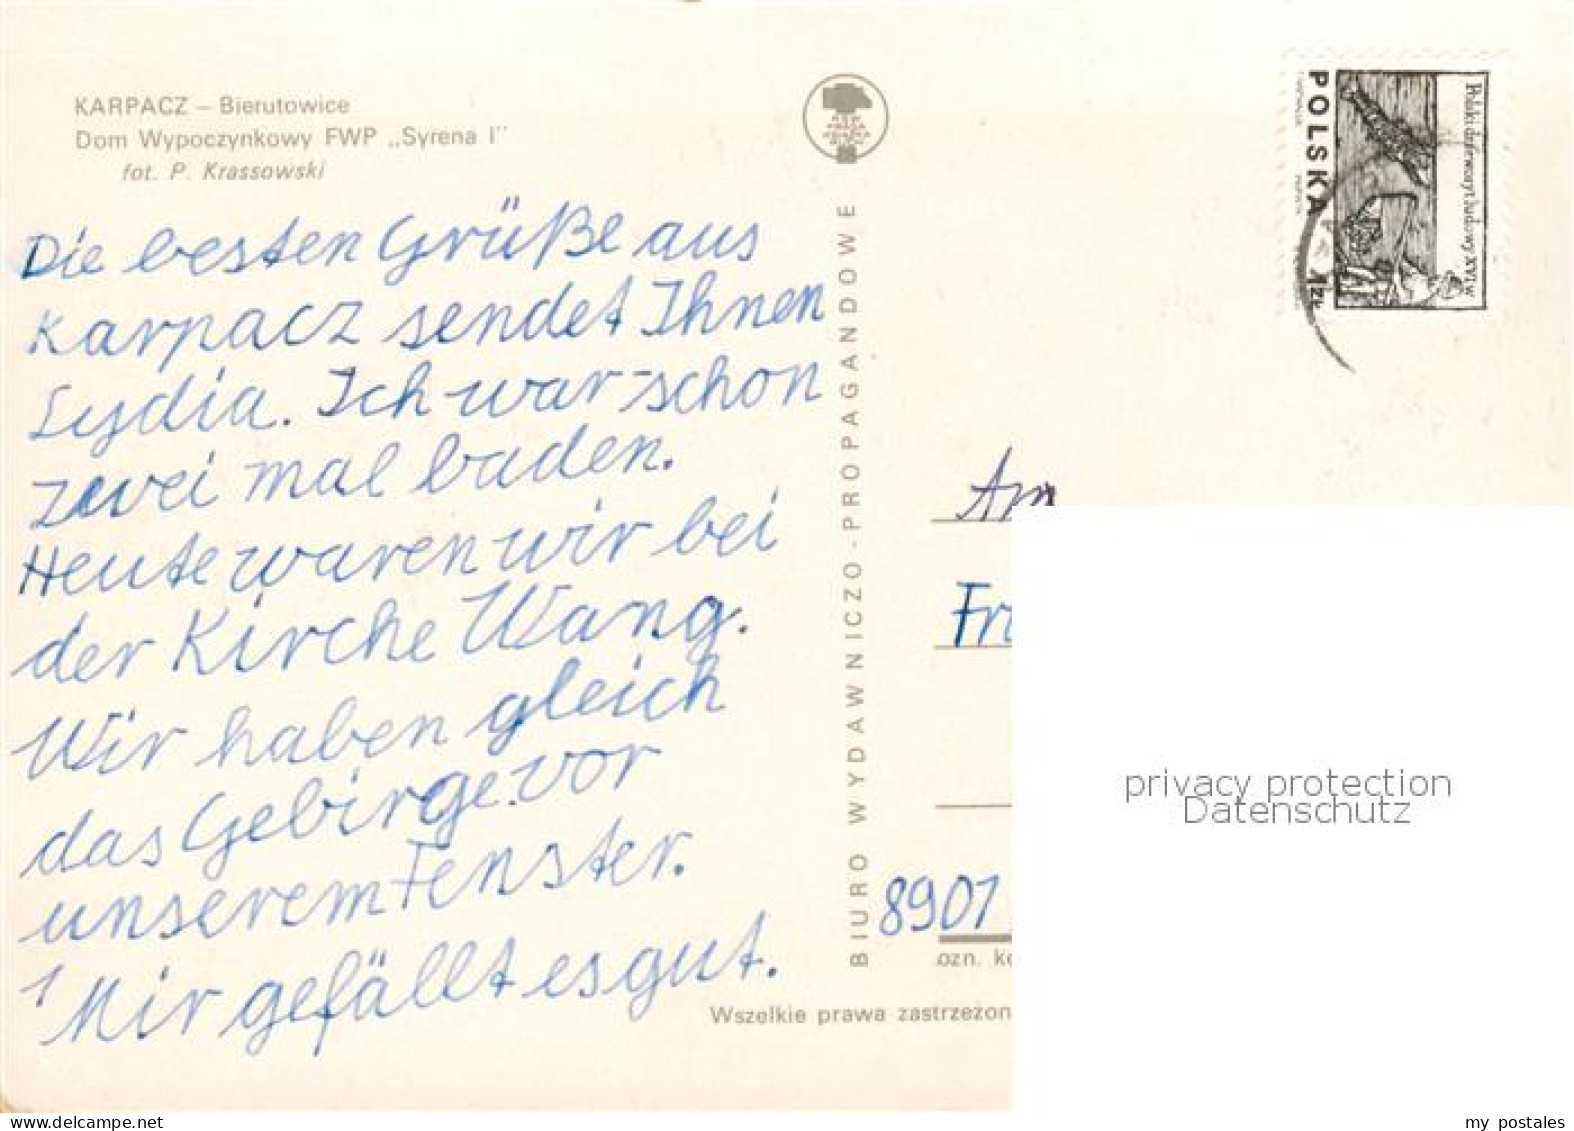 KARPACZ – Bierutowice
Dom Wypoczynkowy FWP „Syrena I”
fot. P. Krassowski
Die besten Grüße aus
Karpacz sendet Ihnen
Lydia. Ich war schon
zwei mal baden.
Heute waren wir bei
der Kirche Wang.
Wir haben gleich
das Gebirge vor
unserem Fenster.
Mir gefällt es gut.
BIURO WYDAWNICZO-PROPAGANDOWE
POLSKA
1 ZŁ
Polski drzeworyt ludowy XVI w
An
8901
Wszelkie prawa zastrzeżon
privacy protection
Datenschutz
my postales